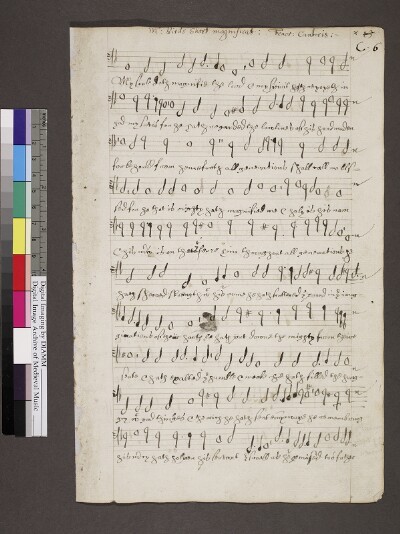 Mr Birds short magnificat : Tenor Cantoris :
C. 6
My soule doth magnifie the lord & my spirit hath reioyced in
god my saviour for he hath regarded the lowlines of his handmaiden
for behold from henceforth all generations shall call me bles
sed for he that is mighty hath magnified me & holy is his name
& his mercy is on them that feare him throughout all generations he
hath shewed strength with his arme he hath scattered the proud in the imag
ginations of their harts he hath put downe the mighty from their
seate & hath exalted the humble & meeke he hath filled the hung
gry with good things & the rich he hath sent empty away he remembring
his mercy hath holpen his servant Israell as he promised to our forefathers
Digital Imaging by DIAMM
Digital Image Archive of Medieval Music